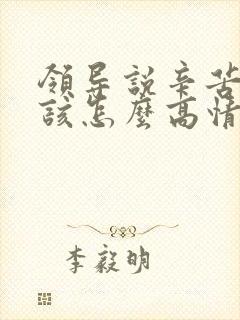 領导說辛苦
該怎麼高情
李毅明